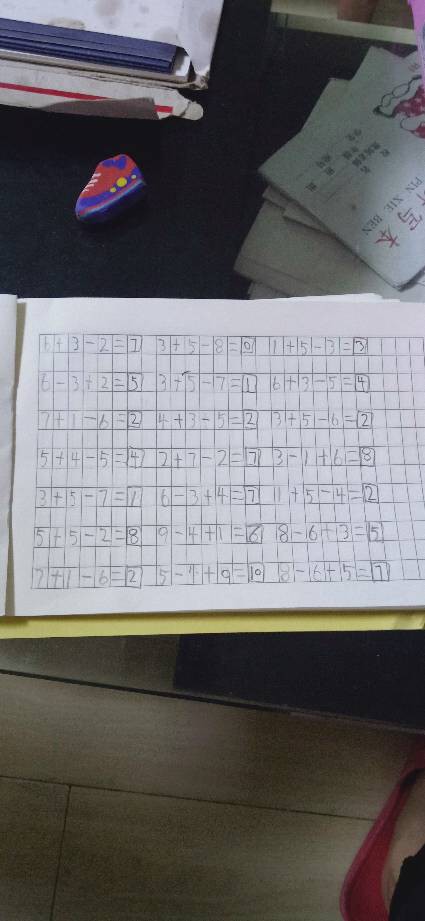 写本
PIN XIE BEN
6+3-2=7 3+5-8=0 1+5-3=3
6-3+2=5 3+5-7=1 6+3-5=4
7+1-6=2 4+3-5=2 3+5-6=2
5+4-5=4 2+7-2=7 3-1+6=8
3+5-7=1 6-3+4=7 1+5-4=2
5+5-2=8 9-4+1=6 8-6+3=5
7+1-6=2 5-4+9=10 8-6+5=7